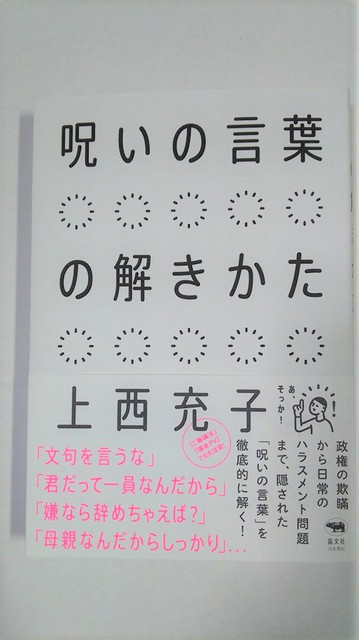 呪いの言葉
の解きかた
上西充子
「ご飯論法」
「国会PV」
でも大活躍!
あ、
そっか!
政権の欺瞞
から日常の
ハラスメント問題
まで、隠された
「呪いの言葉」を
徹底的に解く!
「文句を言うな」
「君だって一員なんだから」
「嫌なら辞めちゃえば?」
「母親なんだからしっかり」...
晶文社